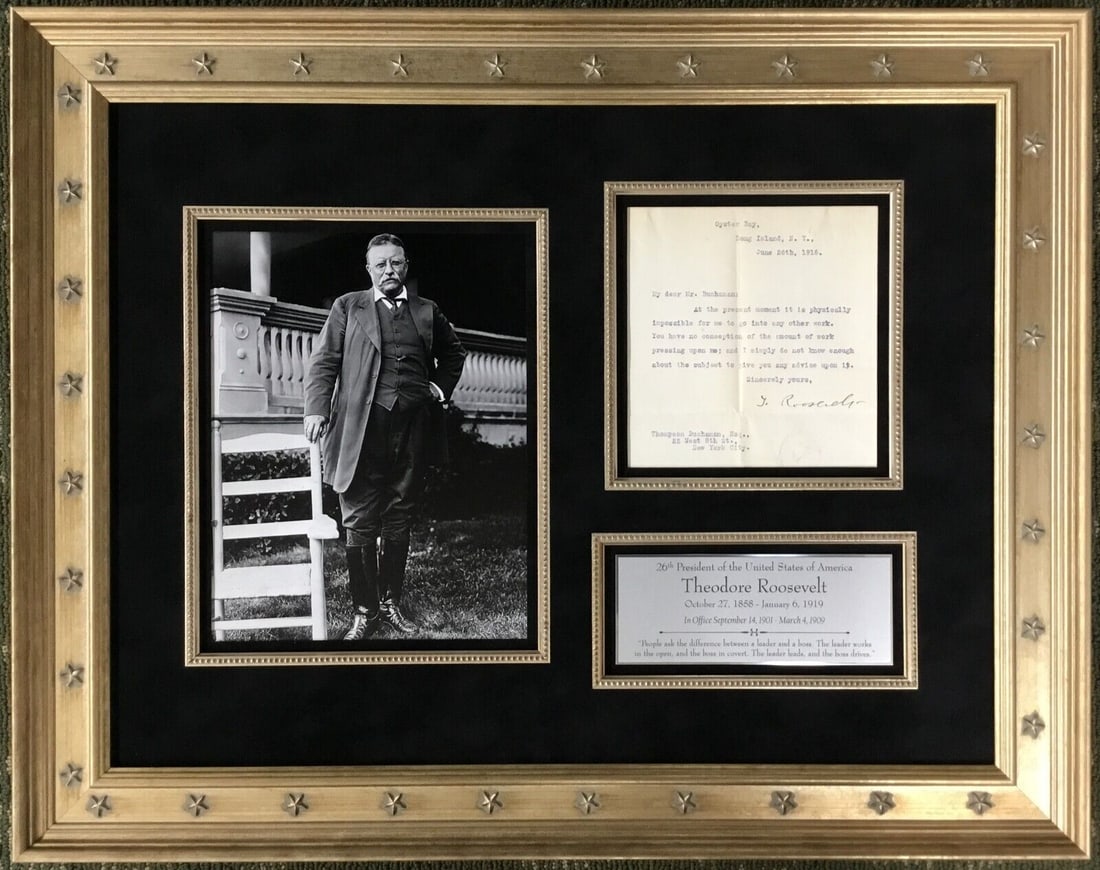 Oyster Bay,
Long Island, N. Y.,
June 26th, 1916.
My dear Mr. Buchanan:
At the present moment it is physically
impossible for me to go into any other work.
You have no conception of the amount of work
pressing upon me; and I simply do not know enough
about the subject to give you any advice upon it.
Sincerely yours,
T. Roosevelt
Thompson Buchanan, Esq.,
West 8th St.,
New York City.
26th President of the United States of America
Theodore Roosevelt
October 27, 1858 - January 6, 1919
In Office September 14, 1901 - March 4, 1909
"People ask the difference between a leader and a boss. The leader works
in the open, and the boss in covert. The leader leads, and the boss drives."